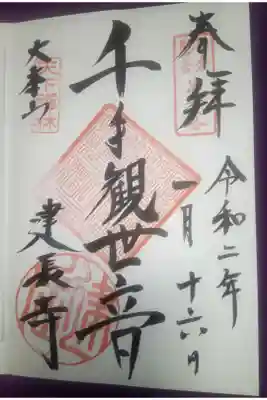 奉拝
令和二年
一月十六日
千手観世音
大本山
建長寺